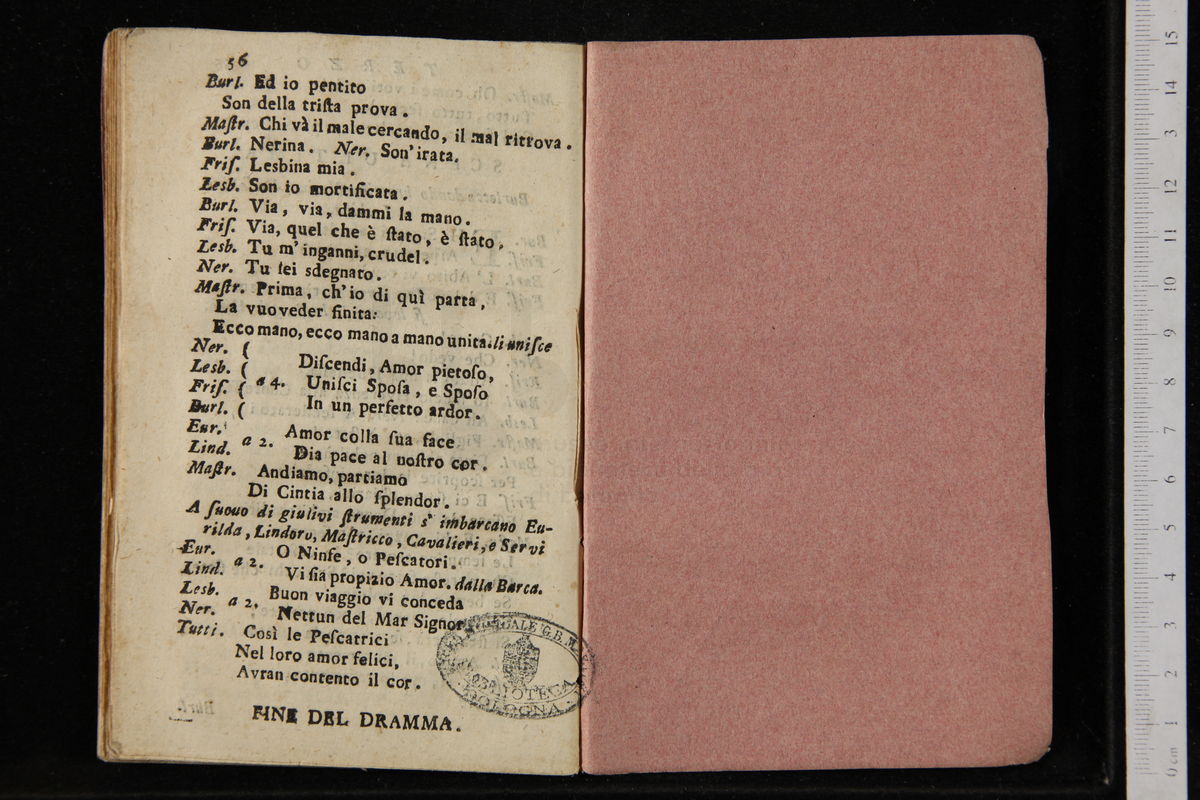 56
Burl. Ed io pentito
Son della triſta prova.
Maſtr. Chi và il male cercando, il mal ritrova.
Burl. Nerina. Ner. Son' irata.
Friſ. Lesbina mia.
Lesb. Son io mortificata.
Burl. Via, via, dammi la mano.
Friſ. Via, quel che è ſtato, è ſtato,
Lesb. Tu m' inganni, crudel.
Ner. Tu ſei sdegnato.
Maſtr. Prima, ch' io di quì parta,
La vuo veder finita:
Ecco mano, ecco mano a mano unita. li uniſce
Ner. (
Lesb. ( Diſcendi, Amor pietoſo,
Friſ. ( a 4. Uniſci Spoſa, e Spoſo
Burl. ( In un perfetto ardor.
Eur. Amor colla ſua face
Lind. a 2. Dia pace al noſtro cor.
Maſtr. Andiamo, partiamo
Di Cintia allo ſplendor.
A ſuouo di giulivi ſtrumenti s' imbarcano Eu-
rilda, Lindoro, Maſtricco, Cavalieri, e Servi
Eur. O Ninfe, o Peſcatori.
Lind. a 2. Vi ſia propizio Amor. dalla Barca.
Lesb. Buon viaggio vi conceda
Ner. a 2. Nettun del Mar Signor
Tutti. Così le Peſcatrici
Nel loro amor felici,
Avran contento il cor.
FINE DEL DRAMMA.
G. B. M
BIBLIOTECA
BOLOGNA
15
14
13
12
11
10
9
8
7
6
5
4
3
2
1
0 cm